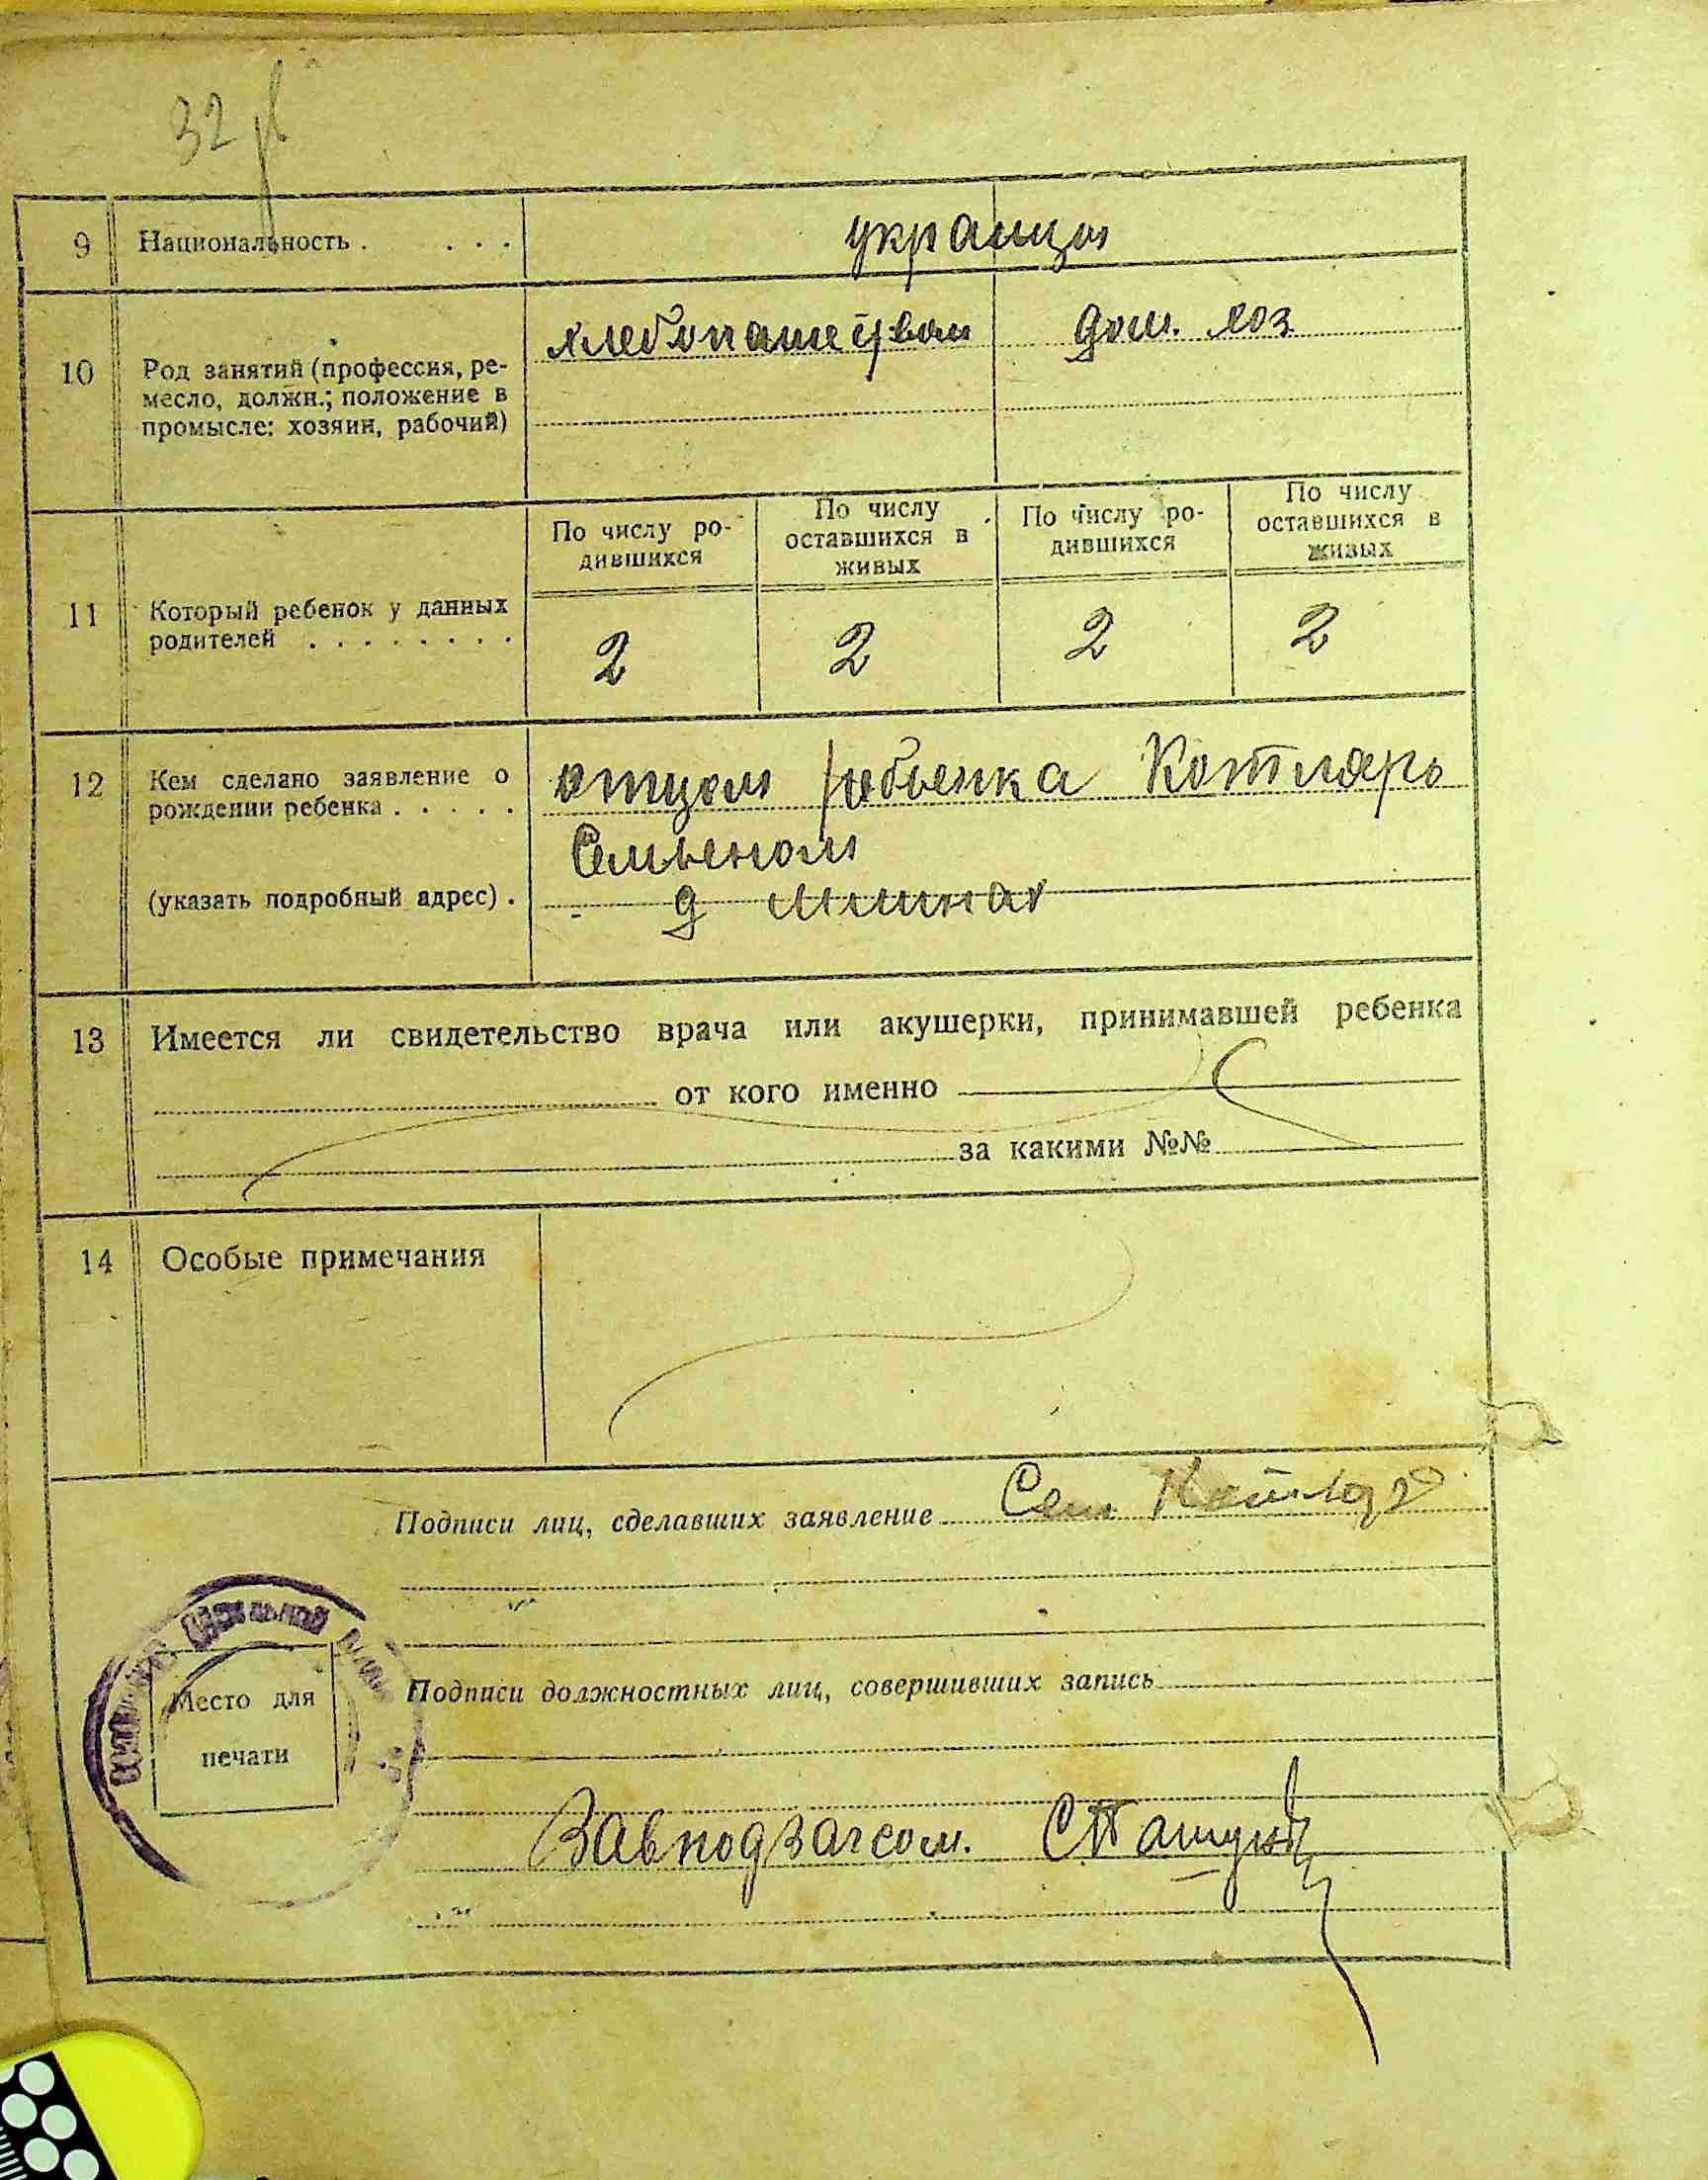 32
9 Национальность . . . . украинцы
10 Род занятий (профессия, ре-
месло, должн.; положение в
промысле: хозяин, рабочий)
хлебопашеством дом. хоз
11 Который ребенок у данных
родителей . . . . . . . .
По числу ро-
дившихся
По числу
оставшихся в
живых
По числу ро-
дившихся
По числу
оставшихся в
живых
2 2 2 2
12 Кем сделано заявление о
рождении ребенка . . . . .
(указать подробный адрес) .
отцом ребьенка Котлярь
Семьеном
д
13 Имеется ли свидетельство врача или акушерки, принимавшей ребенка
от кого именно
за какими №№
14 Особые примечания
Подписи лиц, сделавших заявление Сем Котляр
Подписи должностных лиц, совершивших запись
Место для
печати
Завподзагсом.